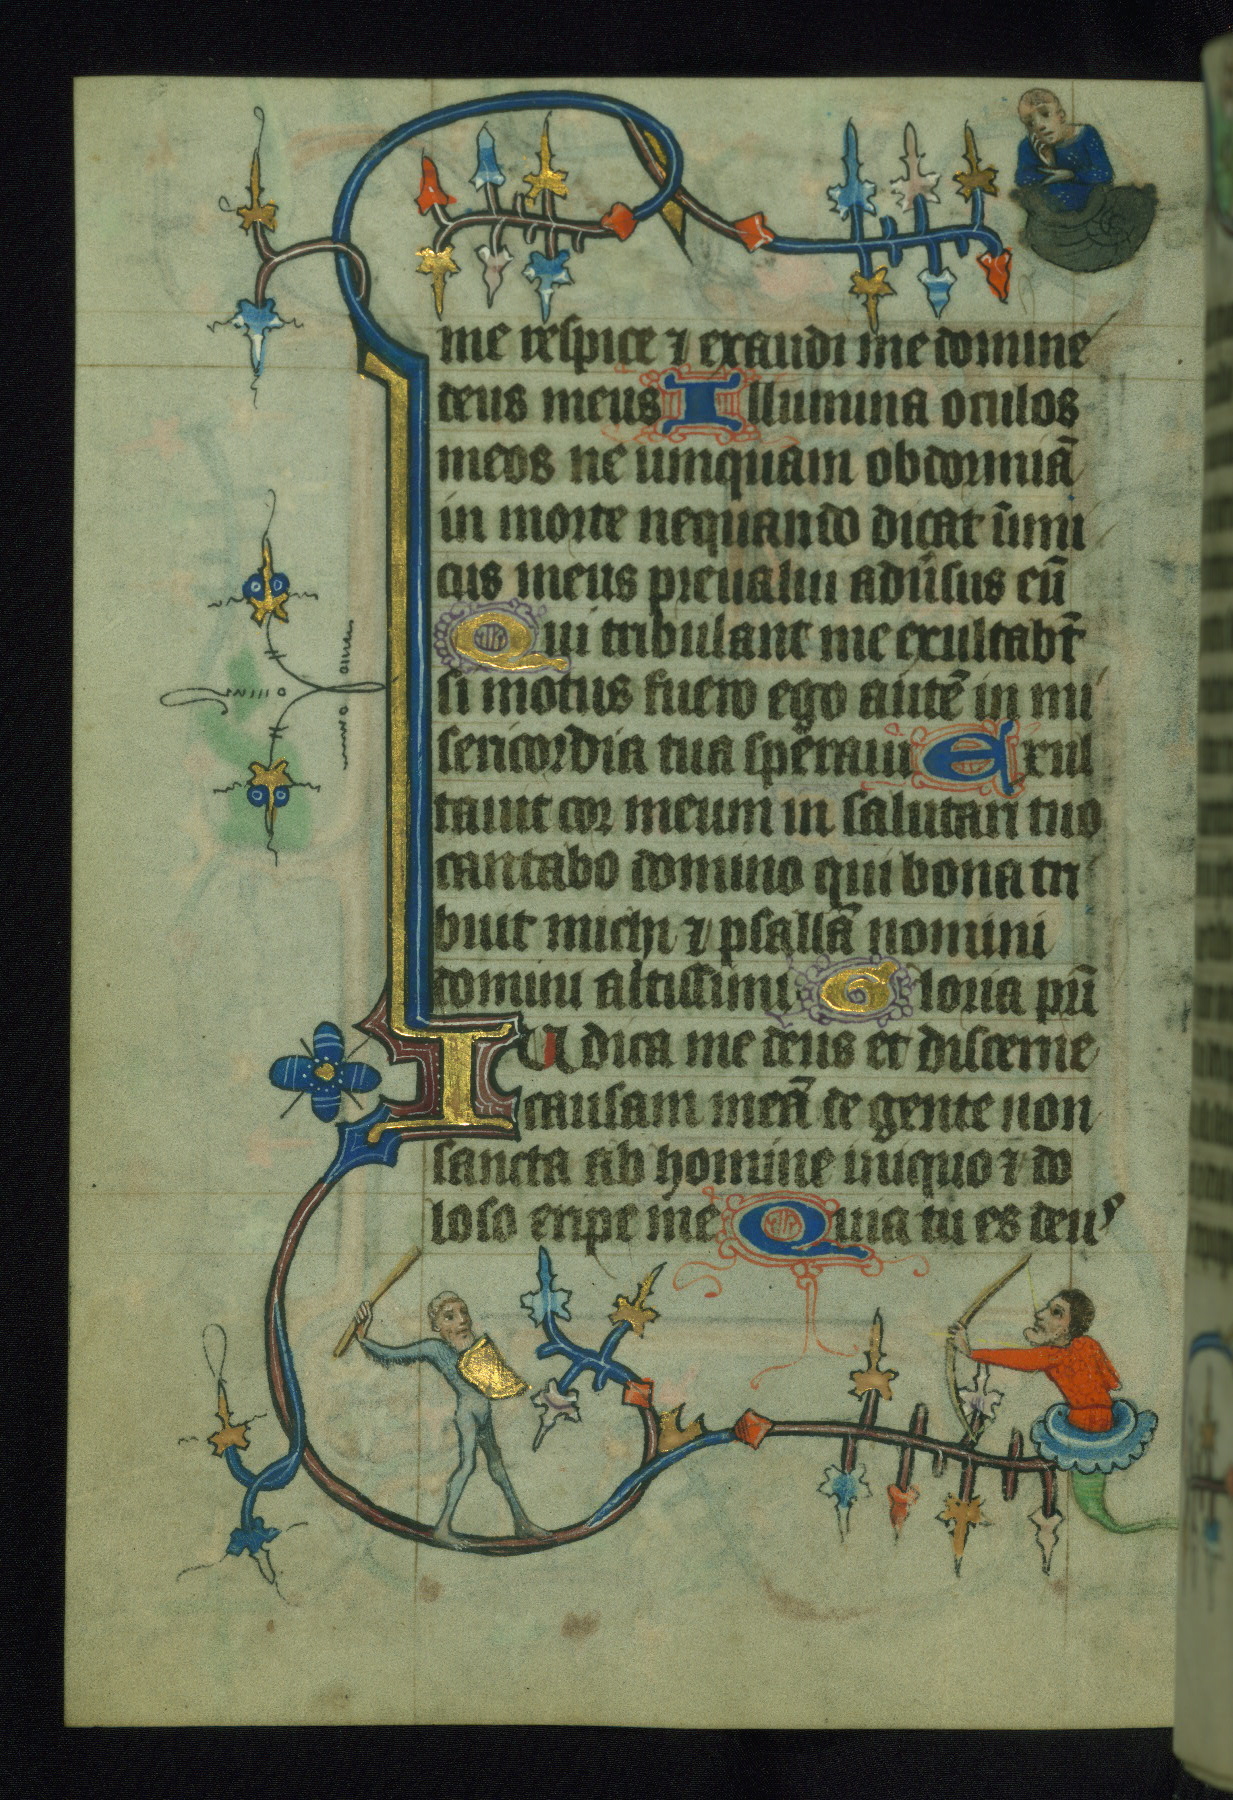 me respice ⁊ exaudi me domine
deus meus Illumina oculos
meos ne umquam obdormiā
in morte nequando dicat inimi
cus meus preualui adūsus eū
Qui tribulant me exultabt̄
si motus fuero ego autē in mi
sericordia tua speraui Exul
tauit cor meum in salutari tuo
cantabo domino qui bona tri
buit michi ⁊ psallā nomini
domini altissimi Gloria pr̄i
Iudica me deus et discerne
causam meā de gente non
sancta ab homine iniquo ⁊ do
loso eripe me Quia tu es deus